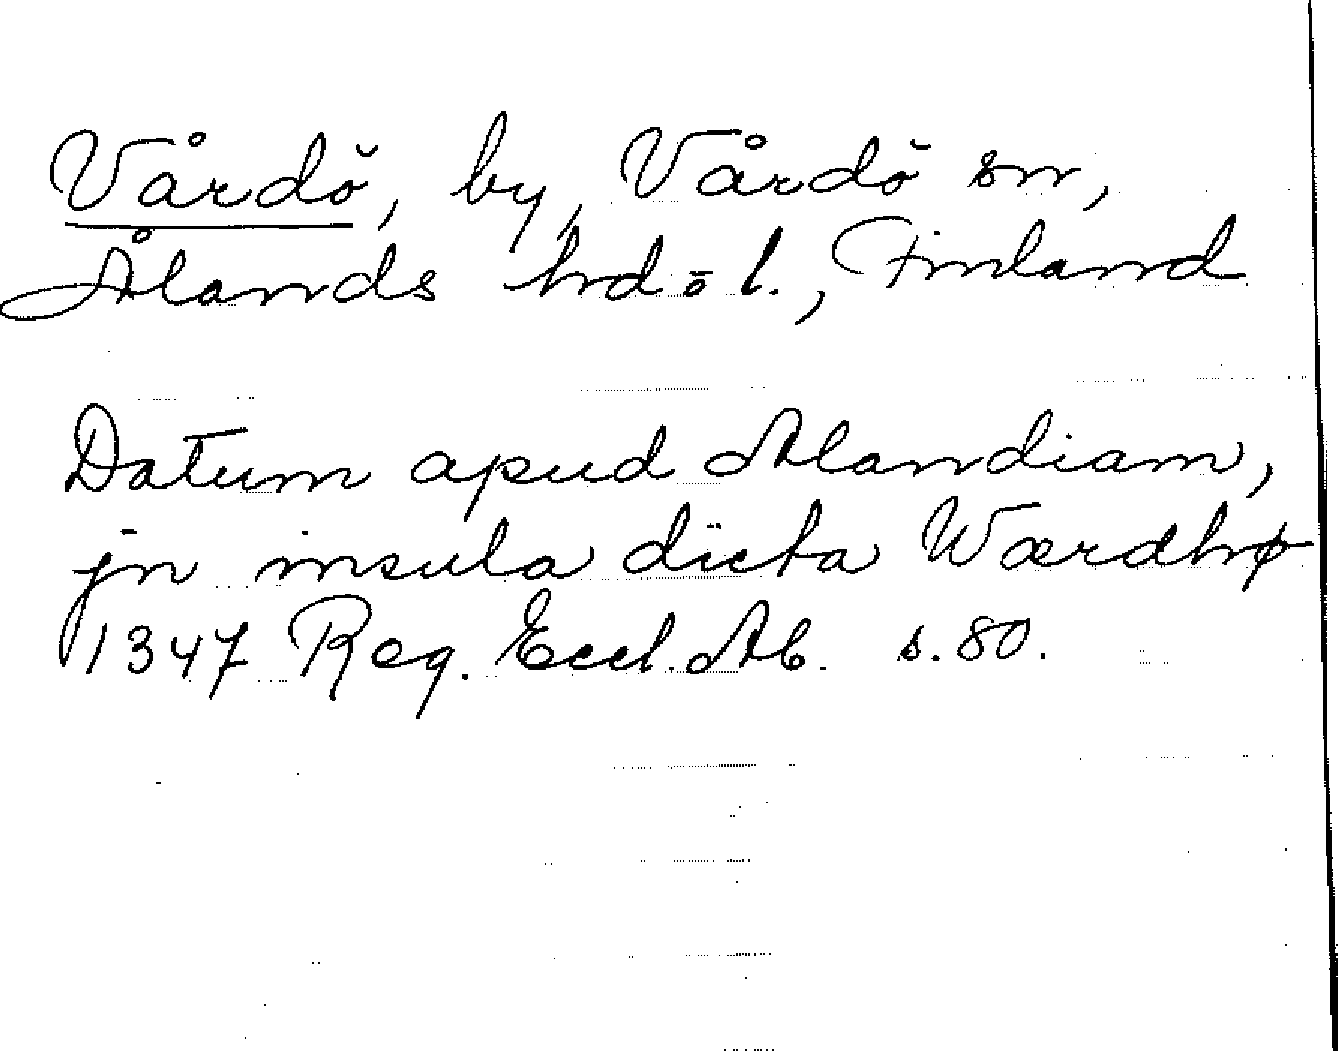 Vårdö, by, Vårdö sn,
Ålands hd o l., Finland
Datum apud Alandiam,
jn insula dicta Wærdhø
1347 Reg. Eccl. Ab. s. 80.